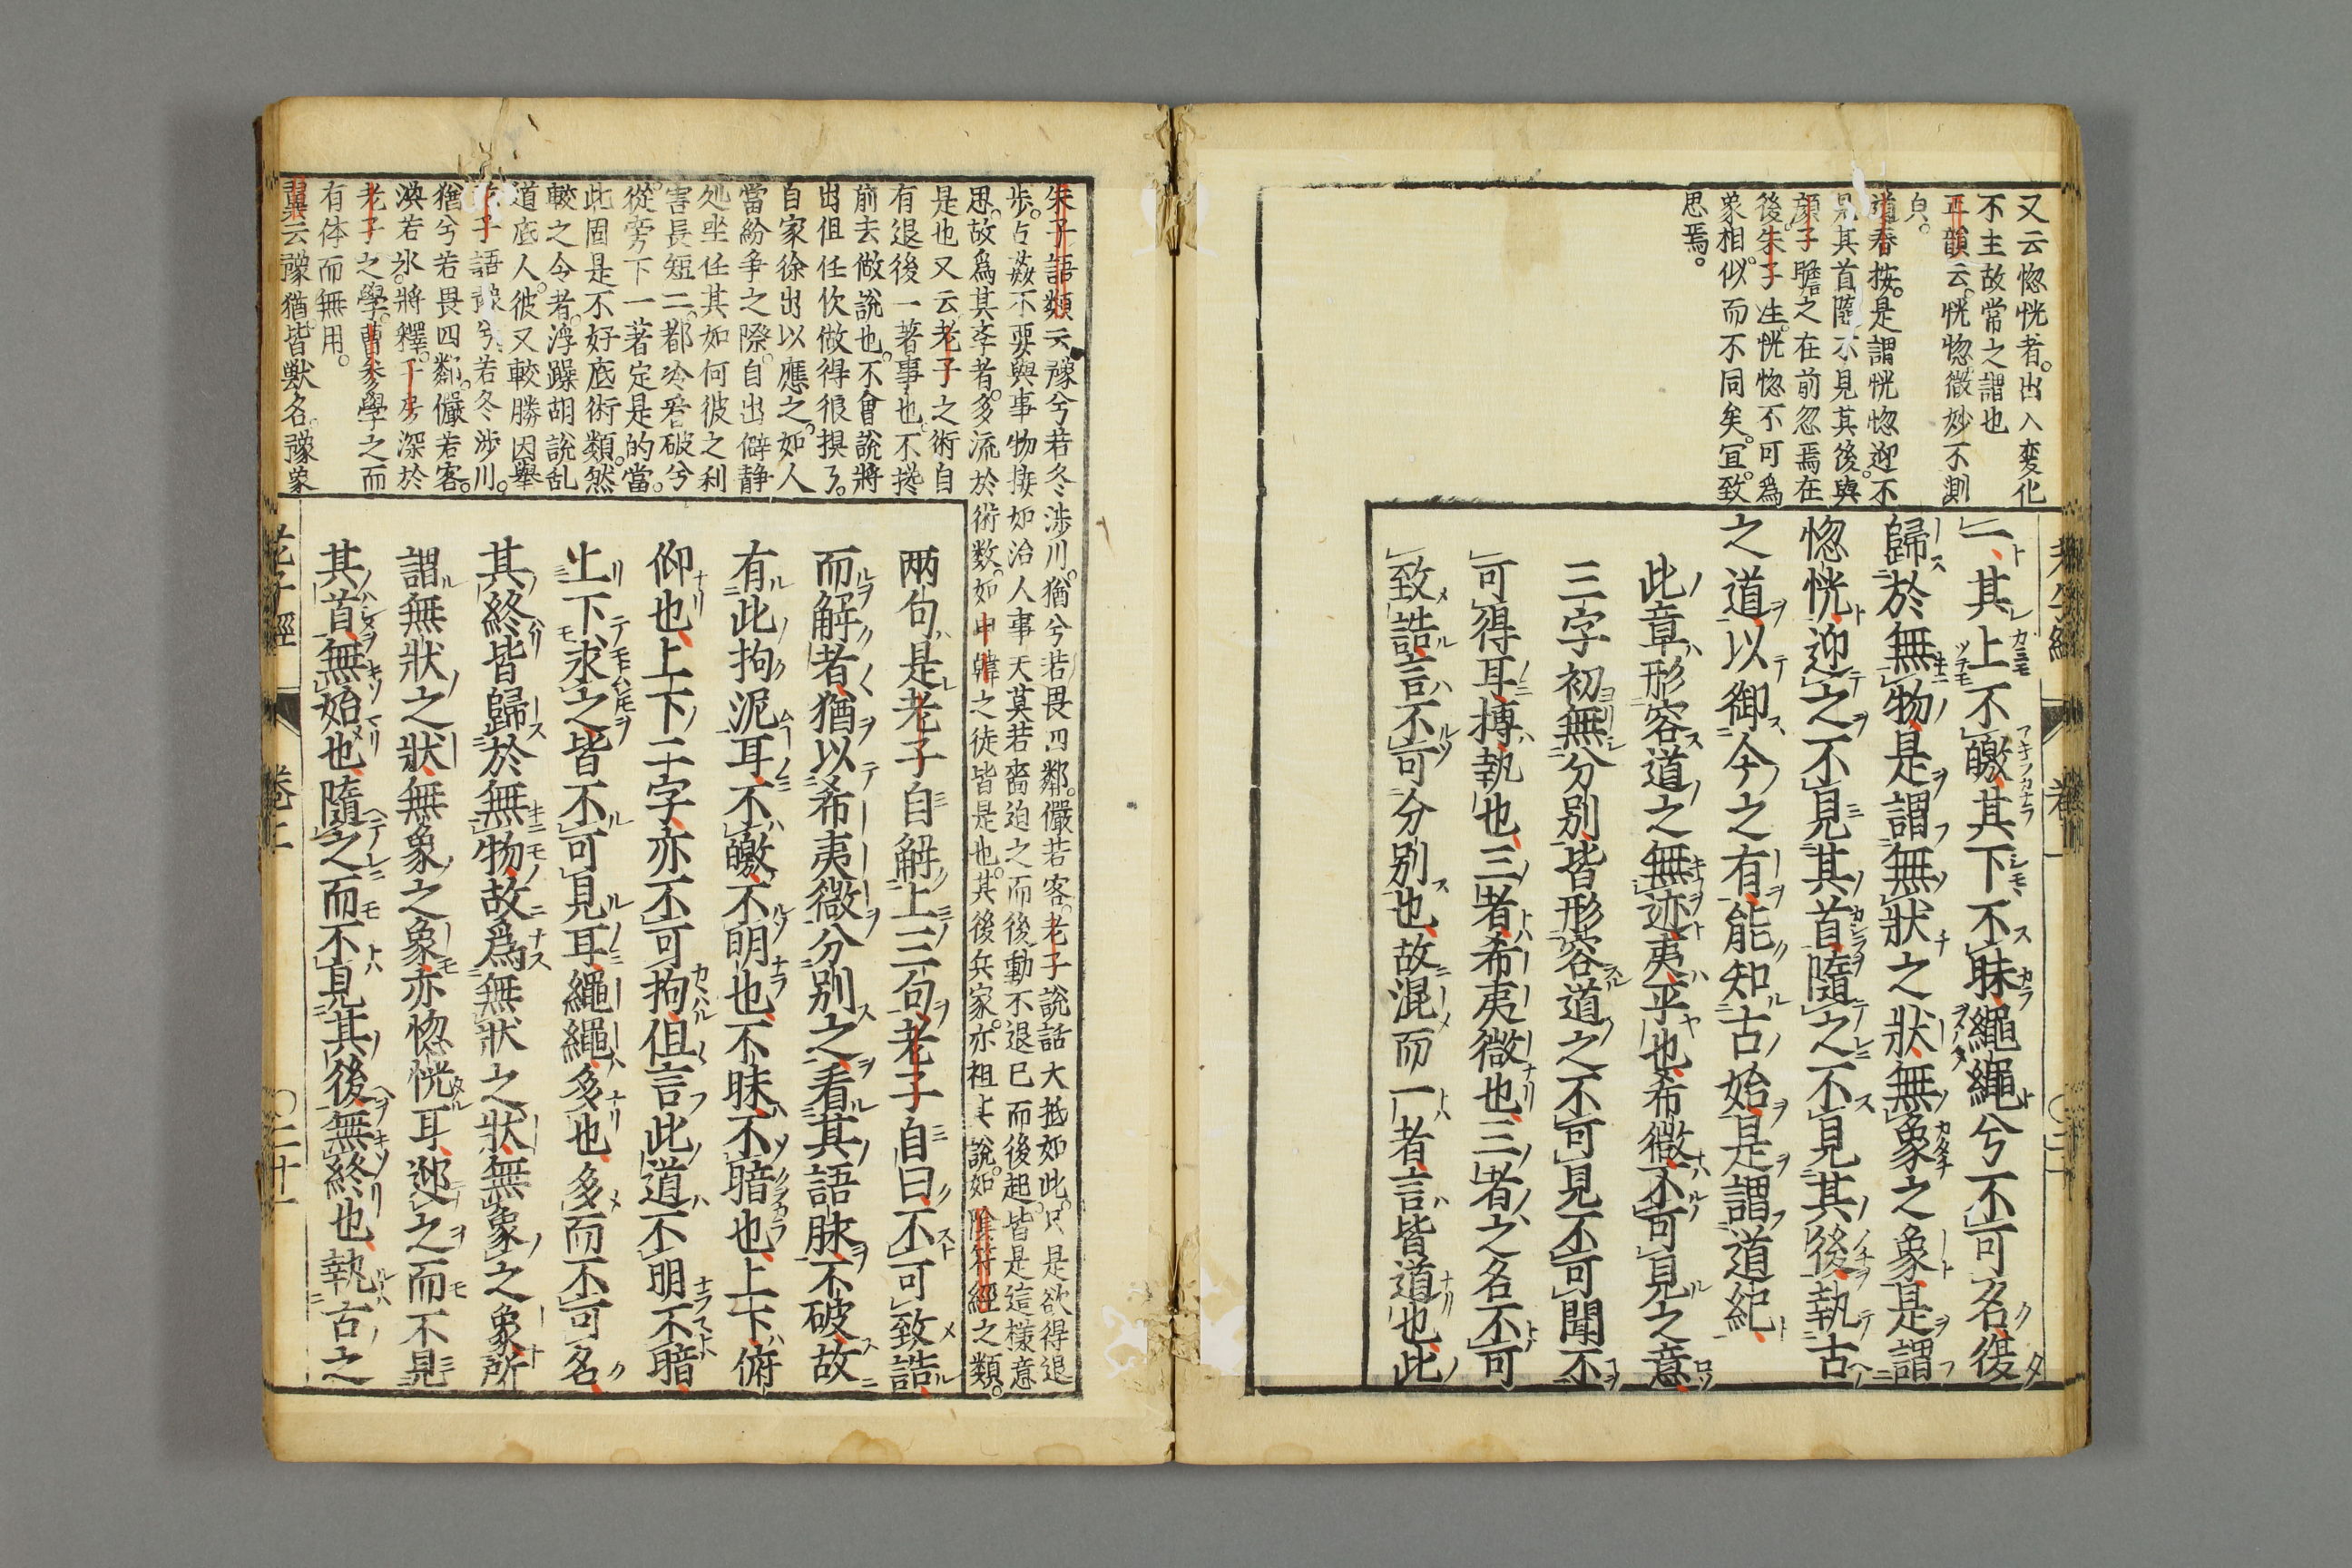 又云惚恍者。出入変化
不主故常之謂也
正韻云。恍惚微妙不測
皃。
道春按。是謂恍惚迎不
見其首隨不見其後。與
顔子瞻之在前忽焉在
後。朱子注。恍惚不可為
象相似。而不同矣。宜。致
思焉。
一其上不皦其下不昧繩繩兮不可名復
歸於無物是謂無狀之狀無象之象是謂
惚恍迎之不見其首隨之不見其後執古
之道以御今之有能知古始是謂道紀
此章形容道之無迹夷平也希微不可見之意
三字初無分別皆形容道之不可見不可聞不
可得耳摶執也三者希夷微也三者之名不可
致詰言不可分別也故混而一者言皆道也此
朱子語類云豫兮若冬渉川。猶兮若畏四鄰。儼若客。老子說話大抵如此。只是欲得退
歩。占姦不要與事物接如治人事天莫若嗇迫之而後動不退已而後起。皆是這樣意
思。故為其李者。多流於術数。如申韓之徒皆是也。其後兵家。亦祖其說。如陰符經之類。
是也又云老子之術自
有退後一著事也不攙
前去做說也。不會說將
出但任伙做得狼損了。
自家徐出以應之。如人
當紛爭之際。自出僻静
処坐任其如何彼之利
害長短二。都冷看破兮
從旁下一著定是的當。
此固是不好底術類。然
較之今者。浮躁胡說乱
道底人。彼又較勝因舉
老子語豫兮。若冬渉川。
猶兮若畏四鄰。儼若客。
渙若氷。將釋。子房深於
老子之學。曹參學之而
有体而無用。
翼云豫猶。皆獣名。豫象
兩句是老子自解上三句老子自曰不可致詰
而解者猶以希夷微分別之看其語脉不破故
有此拘泥耳不皦不明也不昧不暗也上下俯
仰也上下二字亦不可拘但言此道不明不暗
上下求之皆不可見耳繩繩多也多而不可名
其終皆歸於無物故為無狀之狀無象之象所
謂無狀之狀無象之象亦惚恍耳迎之而不見
其首無始也隨之而不見其後無終也執古之